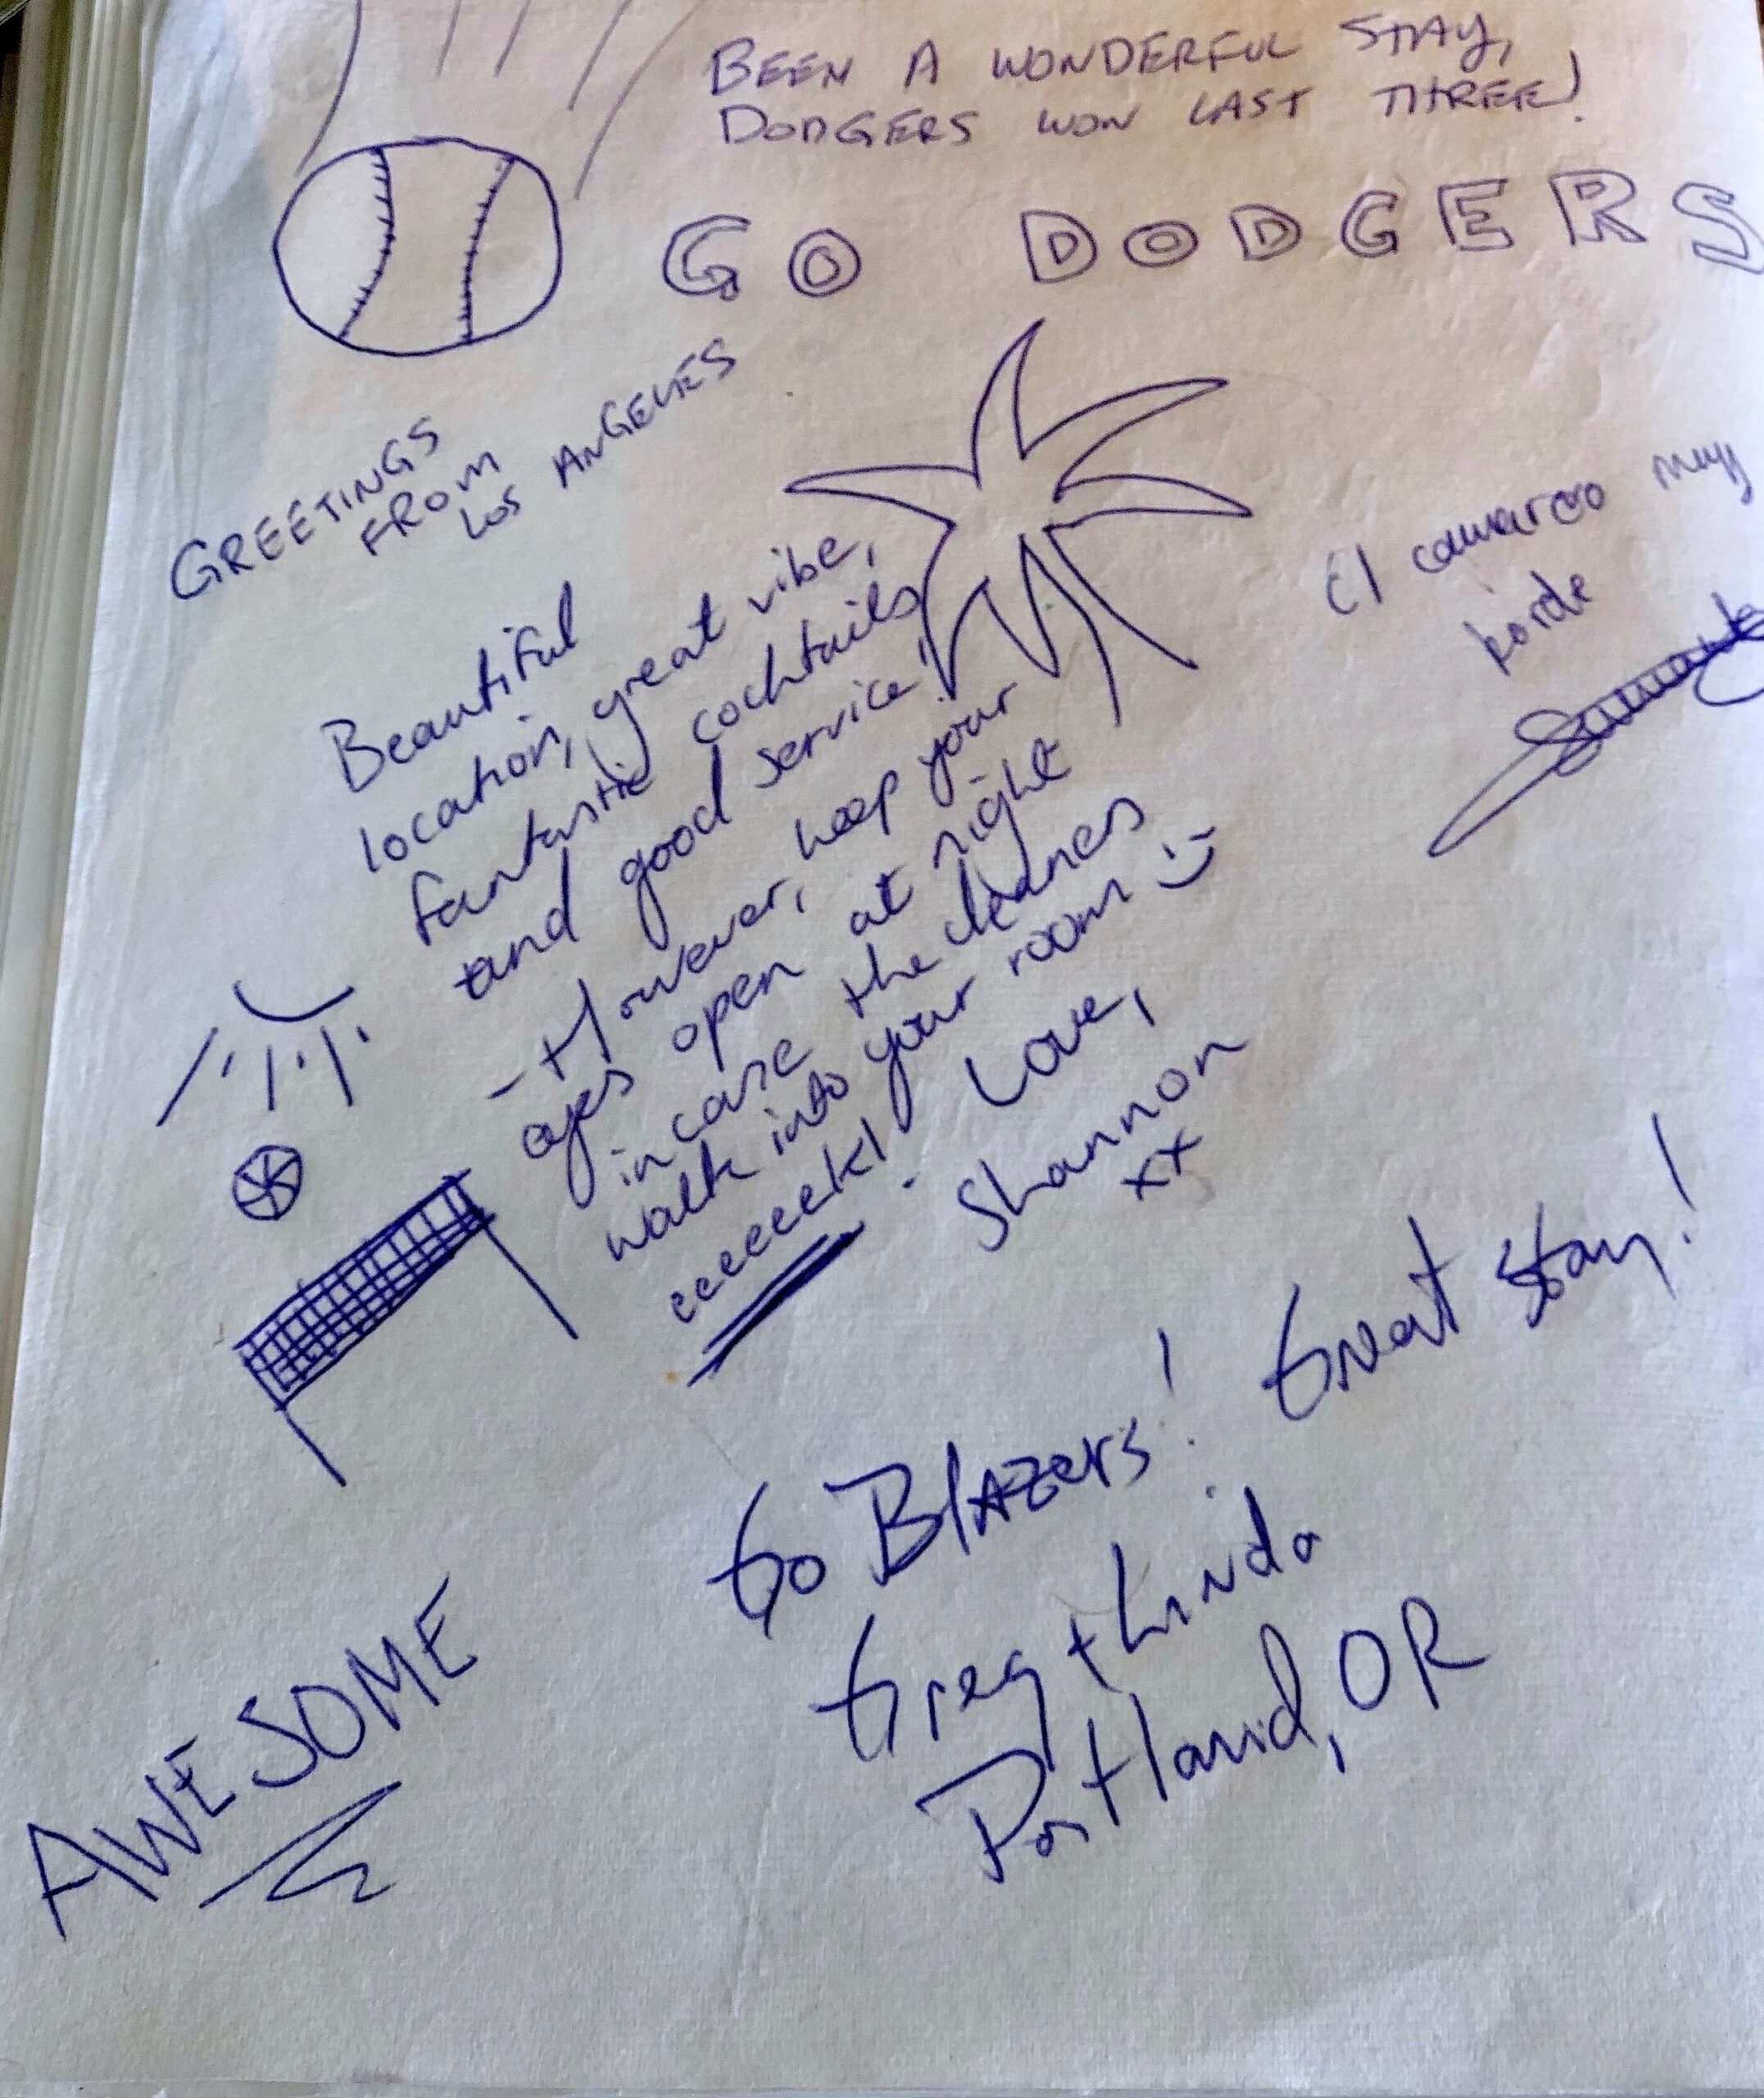 BEEN A WONDERFUL STAY,
DODGERS WON LAST THREE!
GO DODGERS
GREETINGS
FROM
LOS ANGELES
El camarero muy
borde
Beautiful
location, great vibe,
fantastic cocktails
and good service!
- However, keep your
eyes open at night
in case the cleaners
walk into your room :)
eeeeeek!
Love,
Shannon
xx
Go BlAZers! Great stay!
Greg + Linda
Portland, OR
AWESOME